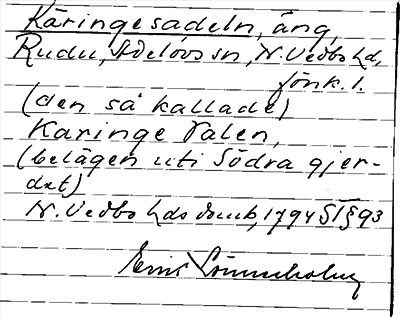 Käringesadeln, äng,
Rudu, Adelövs sn, N. Vedbo hd,
Jönk. l.
(den så kallade)
Karinge Valen,
(belägen uti Södra gjer-
det)
N. Vedbo hds domb, 1794 § 93
Eric